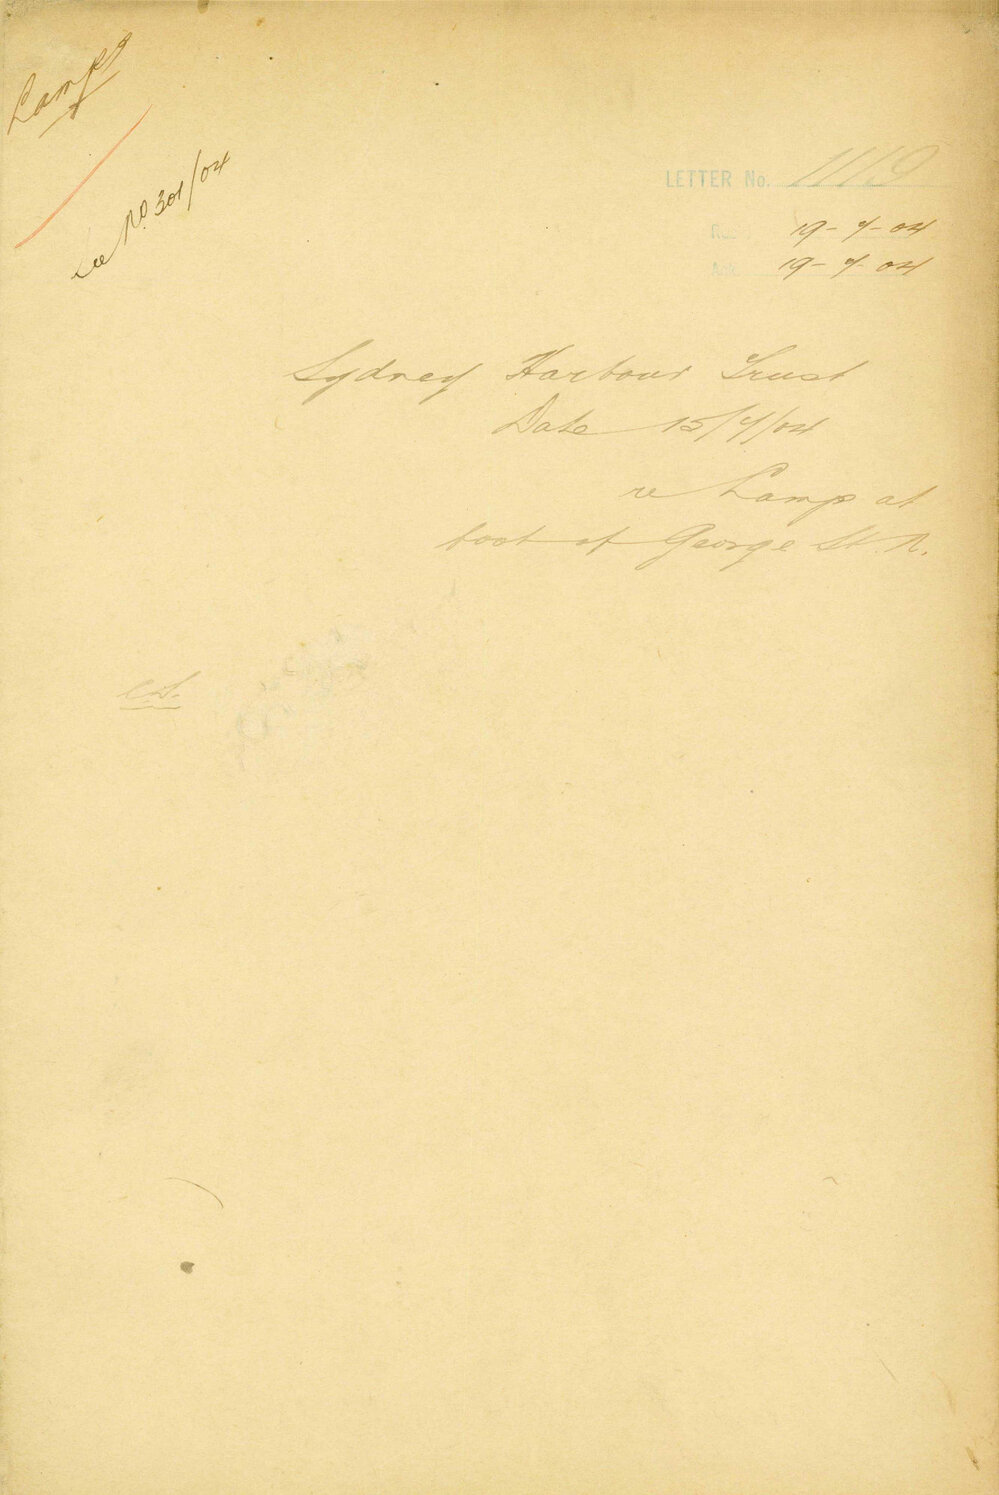 Lamps
See No. 301/04
LETTER No. 1119
Rec. 19-7-04
Ack. 19-7-04
Sydney Harbour Trust
Date 15/7/04
re Lamp at
foot of George St. N.